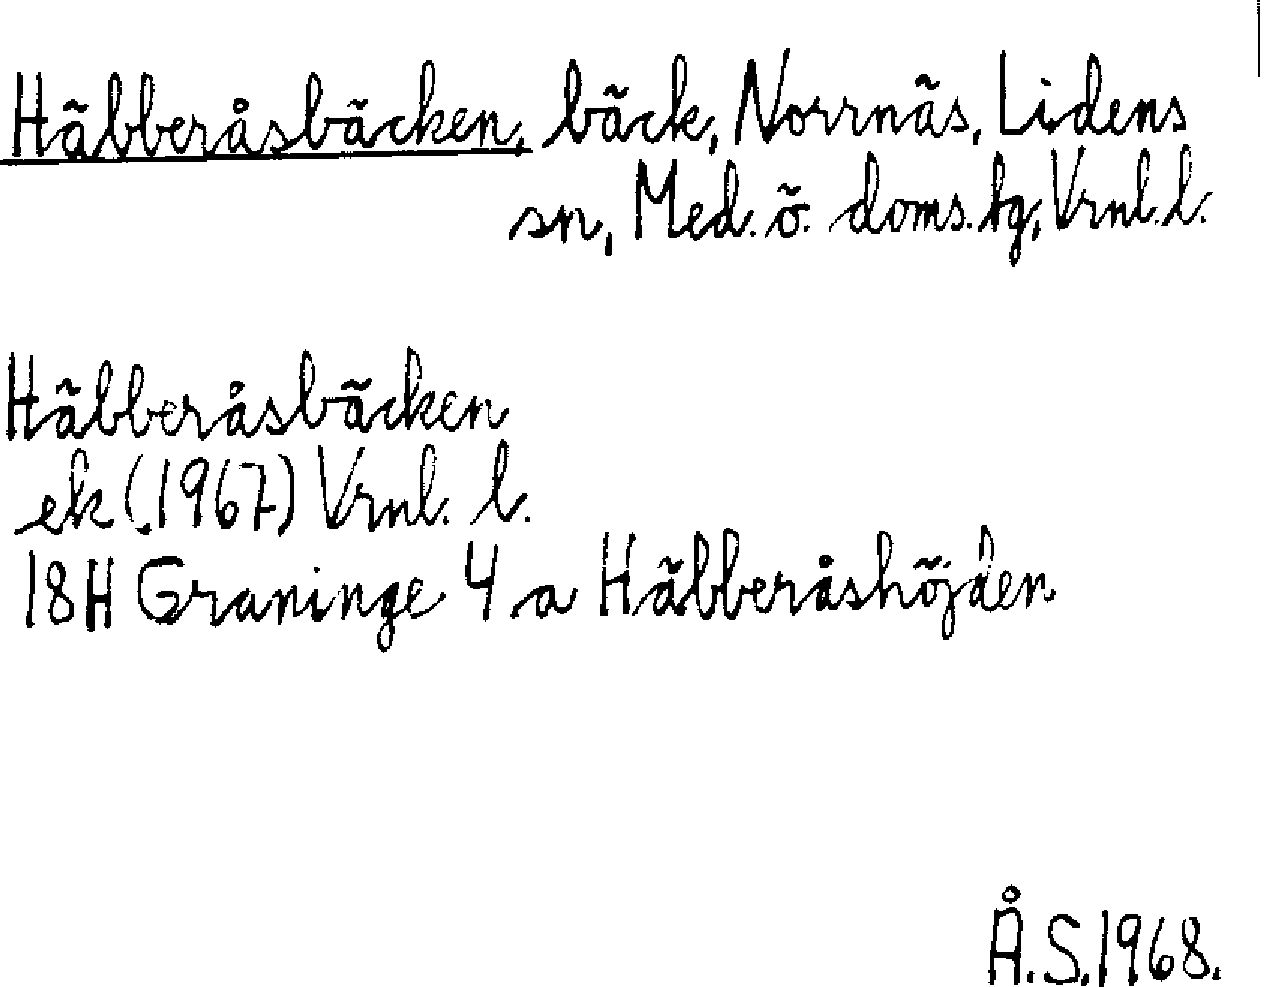 Häbberåsbäcken, bäck, Norrnäs, Lidens
sn, Med. ö. doms. tg, Vrnl. l.
Häbberåsbäcken
ek (1967) Vrnl. l.
18H Graninge 4 a Häbberåshöjden
Å.S. 1968.